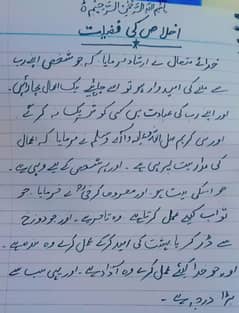 بسم اللہ الرحمن الرحیم
اخلاص کی فضیلت
خدائے متعال نے ارشاد فرمایا کہ جو شخص اپنے رب
سے ملنے کی امیدوار ہو تو اسے چاہئے نیک اعمال بجا لائیں
اور اپنے رب کی عبادت میں کسی کو شریک نہ کرے
اور نبی کریم صلی اللہ علیہ وآلہ وسلم نے فرمایا کہ اعمال
کی مدار نیت پر ہی ہے ۔ اور ہر شخص کے لیے وہی ہے ۔
جو اسکی نیت ہو ۔ اور معروف کرخی نے فرمایا ۔ جو
ثواب کیلئے عمل کرتا ہے وہ تاجر ہے ۔ اور جو دوزخ
سے ڈر کر یا جنت کی امید کرکے عمل کرے وہ
اور جو خدا کیلئے عمل کرے وہ آزاد ہے ۔ اور یہی سب سے
بڑا درجہ ہے ۔